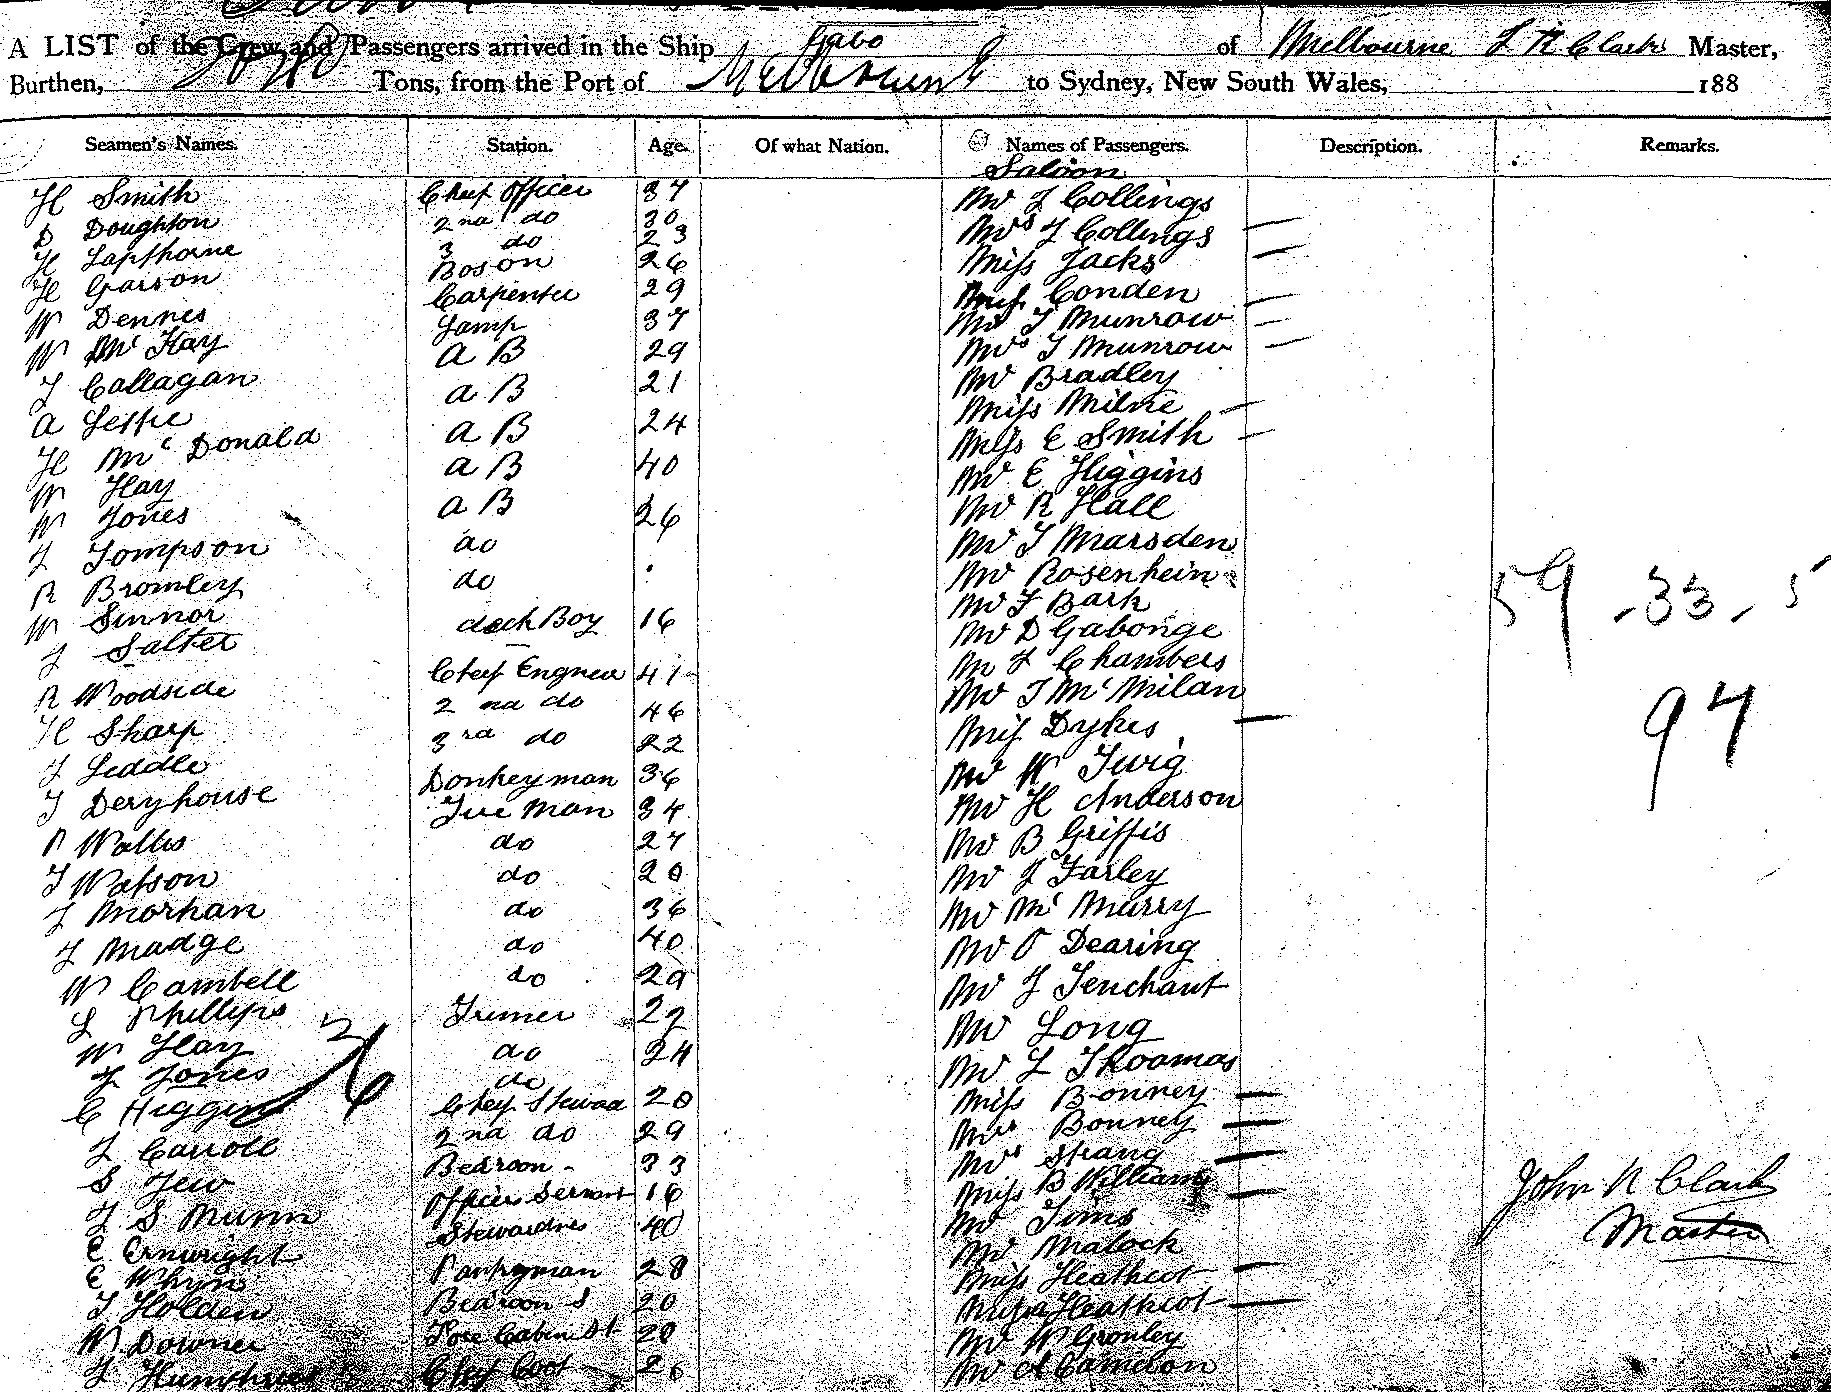 A LIST of the Crew and Passengers arrived in the Ship Gabo of Melbourne J R Clark Master,
Burthen, Tons, from the Port of Melbourne to Sydney, New South Wales, 188
Seamen's Names. Station. Age. Of what Nation. Names of Passengers. Description. Remarks.
Saloon
H Smith Chief Officer 37 Mr J Collings
D Doughton 2nd do 30 Mrs J Collings
H Lapthorne 3 do 23 Miss Jacks
H Garson Boson 26 Miss Conden
W Dennes Carpenter 29 Mr T Munrow
W McKay Lamp 37 Mrs T Munrow
J Callagan A B 29 Mr Bradley
A Leslie A B 21 Miss Milne
H McDonald A B 24 Miss E Smith
W Hay A B 40 Mr E Higgins
W Jones A B 26 Mr R Hall
J Tompson do Mr T Marsden
R Bromley do Mr Rosenhein
W Sinnor deck Boy 16 Mr J Bark
J Salter Mr D Gabonge
R Woodside Chief Engneer 41 Mr J Chambers
H Sharp 2nd do 46 Mr T McMilan
J Leddle 3rd do 22 Miss Dykes
T Deryhouse Donkeyman 36 Mr W Twig
R Wallis Fire Man 34 Mr H Anderson
T Watson do 27 Mr B Griffis
J Morhan do 20 Mr J Farley
J Madge do 36 Mr McMurry
W Cambell do 40 Mr O Dearing
L Phillips do 29 Mr J Tenchant
W Hay Trimer 22 Mr Long
J Jones do 24 Mr L Thoamas
C Higgins do Miss Bonney
J Carroll Chief Steward 20 Mrs Bonney
S Tew 2nd do 29 Mrs Strang
J S Munn Bedroom 33 Miss B Williams
E Arnwright Officer Servant 16 Mr Tims
E Whyn Stewardess 40 Mr Malock
T Holden Pantryman 28 Miss Heathcot
W Downer Bedroom S 20 Miss Heathcot
J Humphries Fore Cabin St 28 Mr W Gronley
Chief Coot 26 Mr A Camelon
59 - 33 - 5
97
26
John R Clark
Master